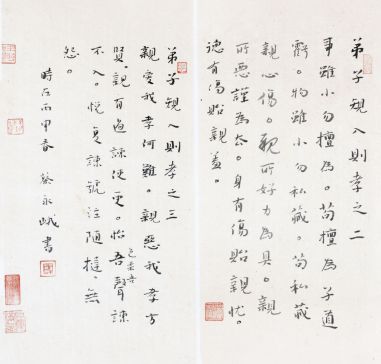 弟子規入則孝之二
事雖小勿擅為。苟擅為子道
虧。物雖小勿私藏。苟私藏
親心傷。親所好力為具。親
所惡謹為去。身有傷貽親憂。
德有傷貽親羞。
弟子規入則孝之三
親愛我孝何難。親惡我孝方
賢。親有過諫使更。怡吾色柔吾聲諫
不入。悅复諫號泣隨撻。無
怨。
時在丙申春 蔡永峨書